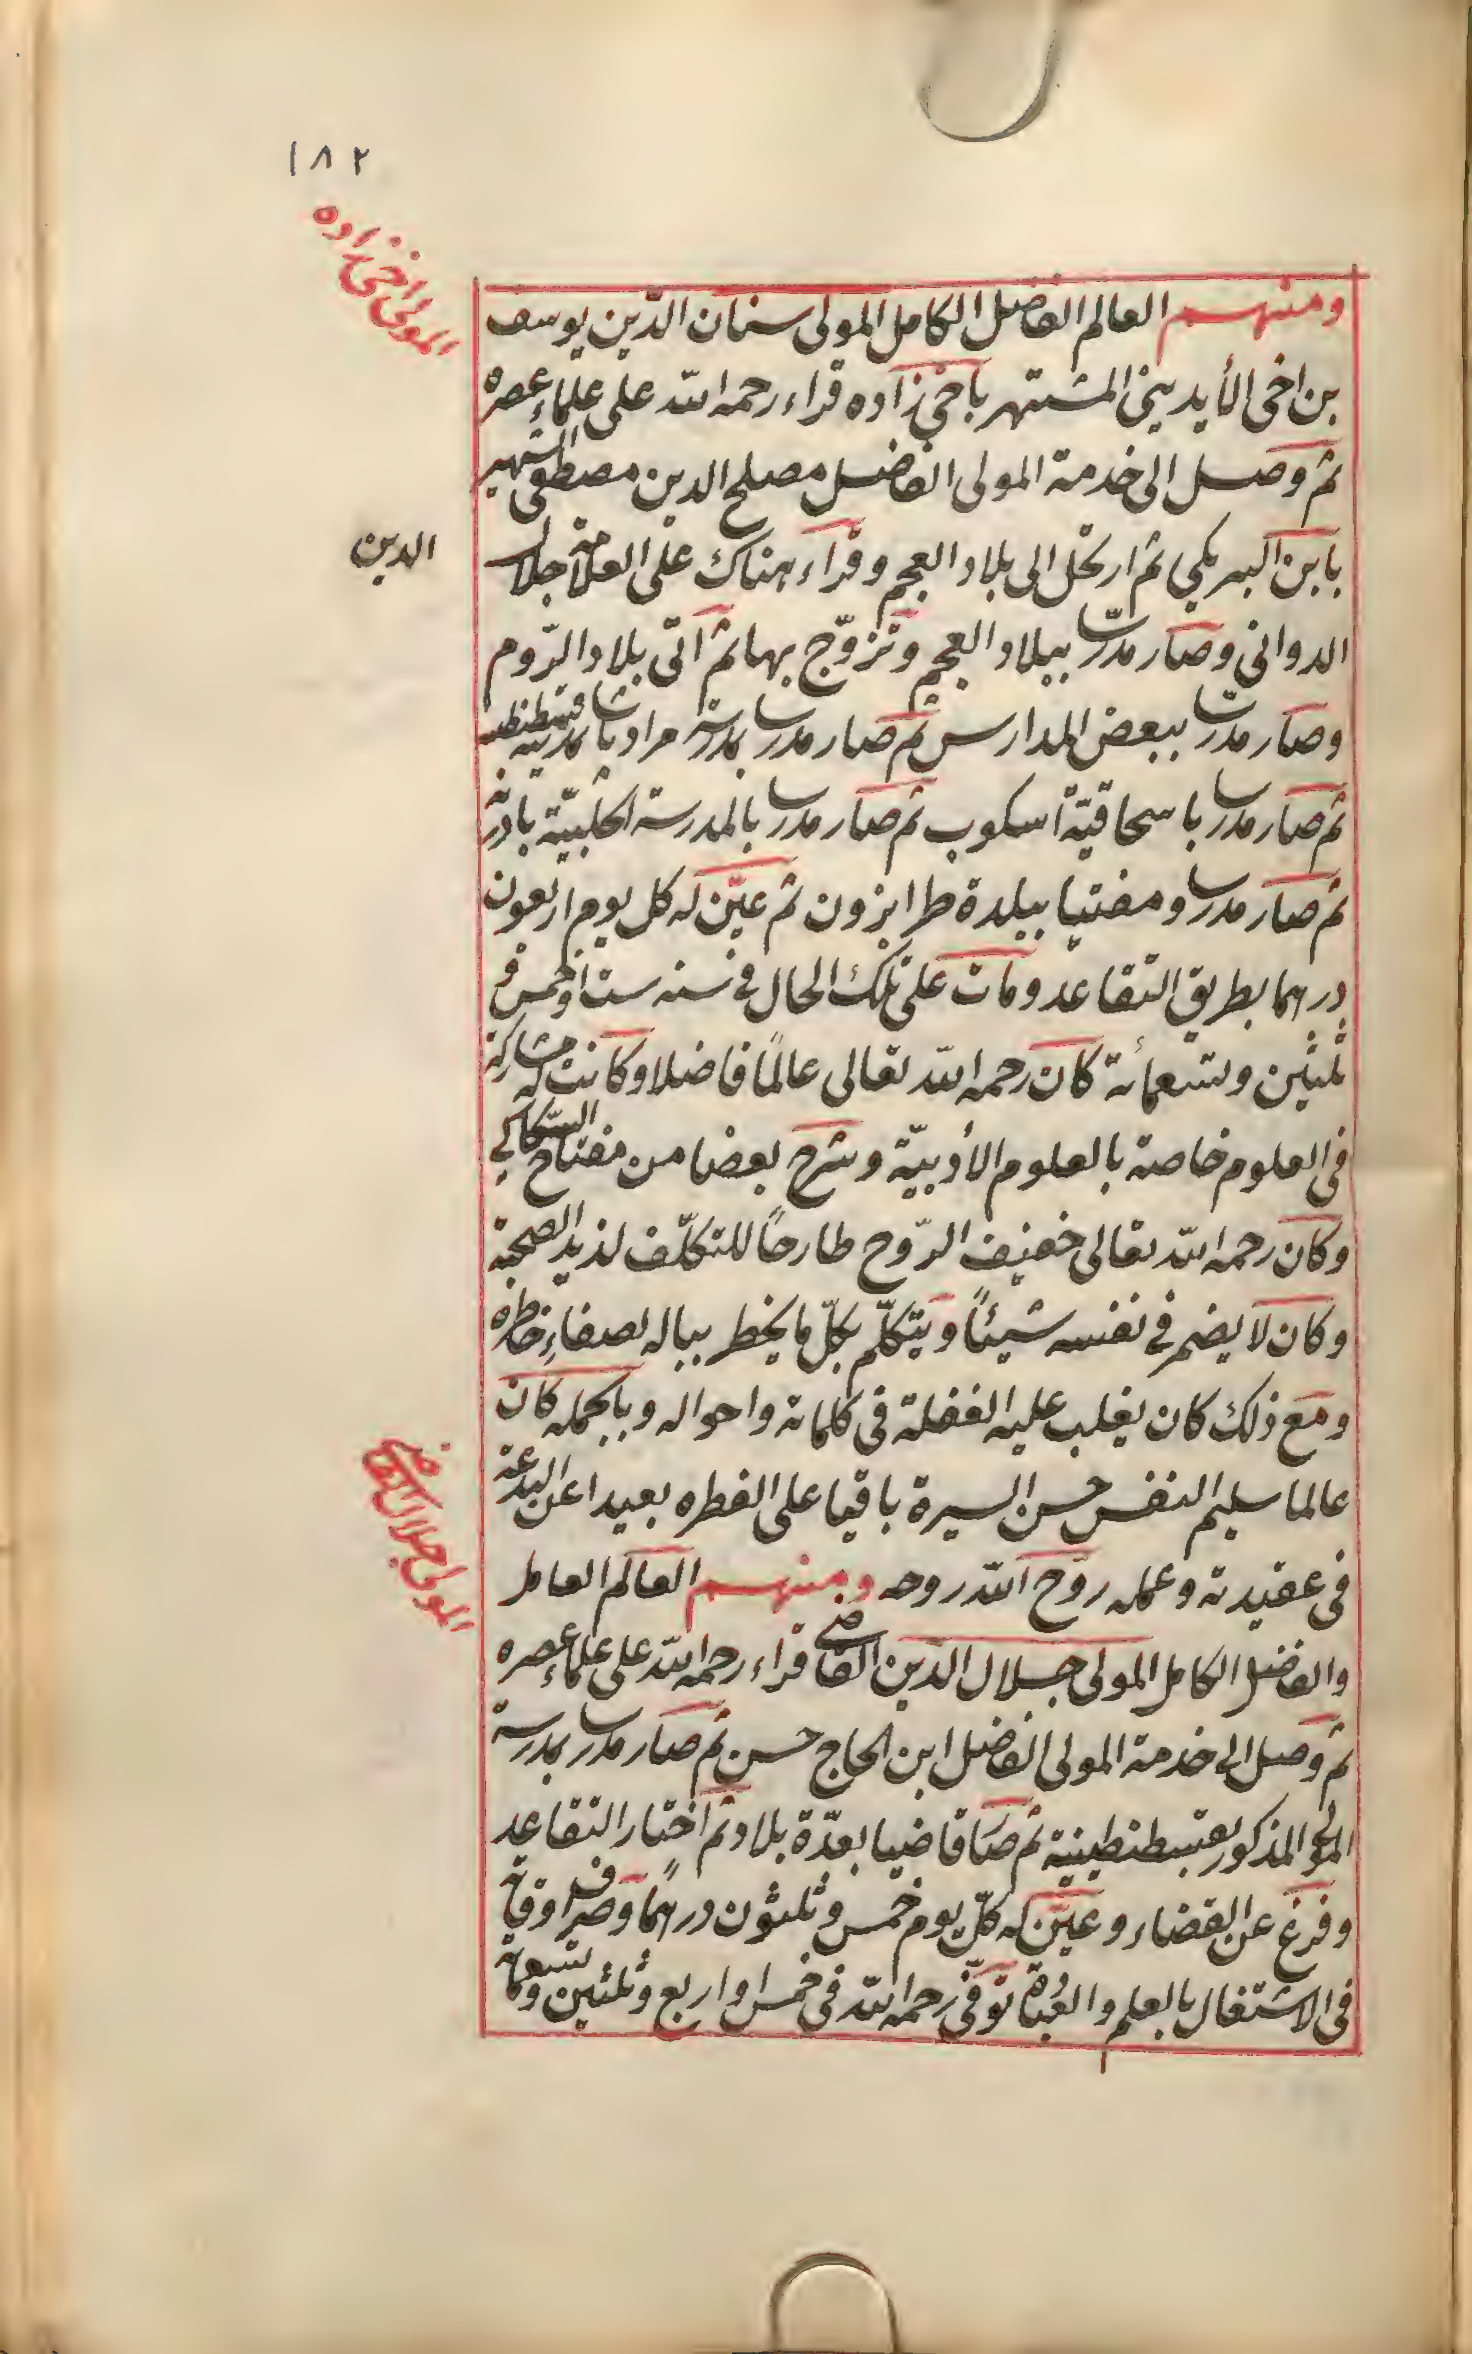 ١٨٢
المولى اخى زاده
ومنهم العالم الفاضل الكامل المولى سنان الدّين يوسف
بن اخى الأيدينى المشتهر باخى زاده قراء رحمه الله على علماء عصره
ثم وصل الى خدمة المولى الفاضل مصلح الدين مصطفى الشهير
بابن البركى ثم ارتحل الى بلاد العجم وقراء هناك على العلامة جلال
الدين
الدوانى وصار مدرسا ببلاد العجم وتزوّج بها ثم اتى بلاد الرّوم
وصار مدرسا ببعض المدارس ثم صار مدرسا بمدرسة مراد باشا بمدينة قسطنطينية
ثم صار مدرسا باسحاقيّة اسكوب ثم صار مدرسا بالمدرسة الحلبيّة بادرنه
ثم صار مدرسا ومفتيا ببلدة طرابزون ثم عيّن له كل يوم اربعون
درهما بطريق التقاعد ومات على تلك الحال فى سنه ست او خمس و
ثلثين وتسعمائة كان رحمه الله تعالى عالمًا فاضلا وكانت له مشاركة
فى العلوم خاصة بالعلوم الأدبيّة وشرح بعضا من مفتاح السّكاكي
وكان رحمه الله تعالى خفيف الرّوح طارحًا للتكلّف لذيذ الصحبة
وكان لا يضمر فى نفسه شيئًا ويتكلّم بكلّ ما يخطر بباله لصفاءِ خاطره
ومع ذلك كان يغلب عليه الغفلة فى كلماته واحواله وبالجمله كان
عالما سليم النفس حسن السيرة باقيا على الفطره بعيدا عن البدعة
فى عقيدته وعمله روّح الله روحه ومنهم العالم العامل
المولى جلال القاضى
والفاضل الكامل المولى جلال الدّين القاضى قراء رحمه الله على علماء عصره
ثم وصل الى خدمة المولى الفاضل ابن الحاج حسن ثم صار مدرسا بمدرسة
المولى المذكور بقسطنطينية ثم صار قاضيا بعدّة بلاد ثم اختار التقاعد
وفرغ عن القضاء وعيّن له كلّ يوم خمس وثلثون درهمًا وصرف اوقاته
فى الاشتغال بالعلم والعبادة توفّى رحمه الله فى خمس او اربع وثلثين وتسعمائة